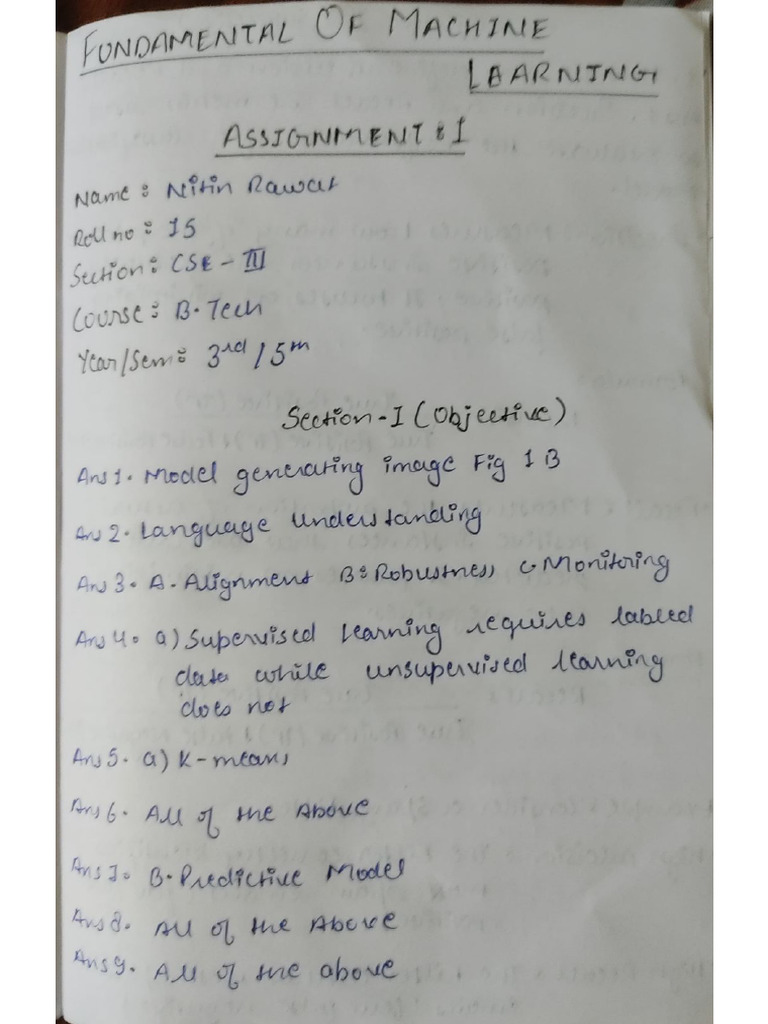 FUNDAMENTAL OF MACHINE
LEARNING
ASSIGNMENT : I
Name : Nitin Rawat
Roll no : 15
Section : CSE - III
Course : B.Tech
Year/Sem : 3rd / 5th
Section - I (Objective)
Ans 1. Model generating image Fig 1 B
Ans 2. Language Understanding
Ans 3. A. Alignment B: Robustness C Monitoring
Ans 4. a) Supervised learning requires labled
data while unsupervised learning
does not
Ans 5. a) K-means
Ans 6. All of the Above
Ans 7. B. Predictive Model
Ans 8. All of the Above
Ans 9. All of the above